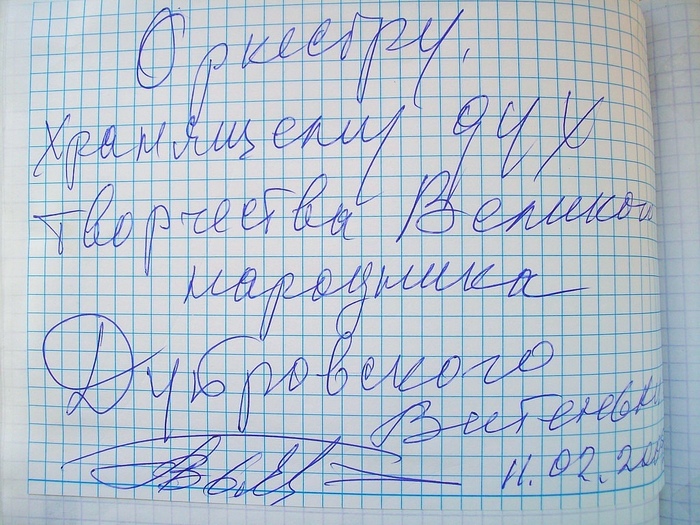 Оркестру,
хранящему дух
творчества Великого
народника
Дубровского
11.02.200